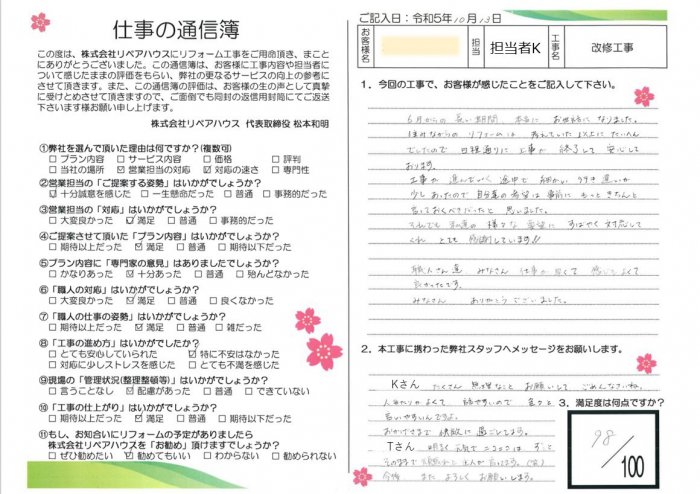 仕事の通信簿
この度は、株式会社リペアハウスにリフォーム工事をご用命頂き、まこと
にありがとうございました。この通信簿は、お客様に工事内容や担当者に
ついて感じたままの評価をもらい、弊社の更なるサービスの向上の参考に
させて頂きます。また、この通信簿の評価は、お客様の生の声として真摯
に受けとめさせて頂きますので、ご面倒でも同封の返信用封筒にてご返送
下さいます様お願い申し上げます。
株式会社リペアハウス 代表取締役 松本和明
①弊社を選んで頂いた理由は何ですか?(複数可)
□プラン内容 □サービス内容 □価格 □評判
□当社の場所 ☑営業担当の対応 ☑対応の速さ □専門性
②営業担当の「ご提案する姿勢」はいかがでしょうか?
☑十分誠意を感じた □一生懸命だった □普通 □事務的だった
③営業担当の「対応」はいかがでしょうか?
□大変良かった ☑満足 □普通 □事務的だった
④ご提案させて頂いた「プラン内容」はいかがでしょうか?
□期待以上だった ☑満足 □普通 □期待以下だった
⑤プラン内容に「専門家の意見」はありましたでしょうか?
□かなりあった ☑十分あった □普通 □殆んどなかった
⑥「職人の対応」はいかがでしょうか?
□大変良かった ☑満足 □普通 □良くなかった
⑦「職人の仕事の姿勢」はいかがでしょうか?
□期待以上だった ☑満足 □普通 □雑だった
⑧「工事の進め方」はいかがでしたか?
□とても安心していられた ☑特に不安はなかった
□対応に少しストレスを感じた □とても不満を感じた
⑨現場の「管理状況(整理整頓等)」はいかがでしょうか?
□言うことなし ☑配慮があった □普通 □できていない
⑩「工事の仕上がり」はいかがでしょうか?
□期待以上だった ☑満足 □普通 □期待以下だった
⑪もし、お知合いにリフォームの予定がありましたら
株式会社リペアハウスを「お勧め」頂けますでしょうか?
□ぜひ勧めたい ☑勧めてもいい □わからない □勧められない
ご記入日:令和5年10月13日
お客様名
担当 担当者K
工事名 改修工事
1.今回の工事で、お客様が感じたことをご記入して下さい。
6月からの長い期間 本当に お世話になりました。
住みながらの リフォームは 考えていた以上に たいへん
でしたので 日程通りに 工事が 終了して 安心して
おります。
工事が 進んでいく 途中で 細かい 違いが
少しあったので 自分達の希望は 事前に もっと きちんと
言っておくべきだったと 思いました。
それでも 私達の 様々な 要望に すばやく 対応して
くれ とても 感謝しています!!
職人さん達 みなさん 仕事が 早くて 感じもよくて
良かったです。
みなさん ありがとうございました。
2.本工事に携わった弊社スタッフへメッセージをお願いします。
Kさん たくさん 無理なこと お願いして ごめんなさいね。
人あたりが よくて 話やすいので 色々と
言いやすいんですよ。
おかげさまで 快適に 過ごしてます。
Tさん 明るく 元気で ニコニコは ずっと
そのままで
今後 また よろしく お願いします。
3.満足度は何点ですか?
98/100